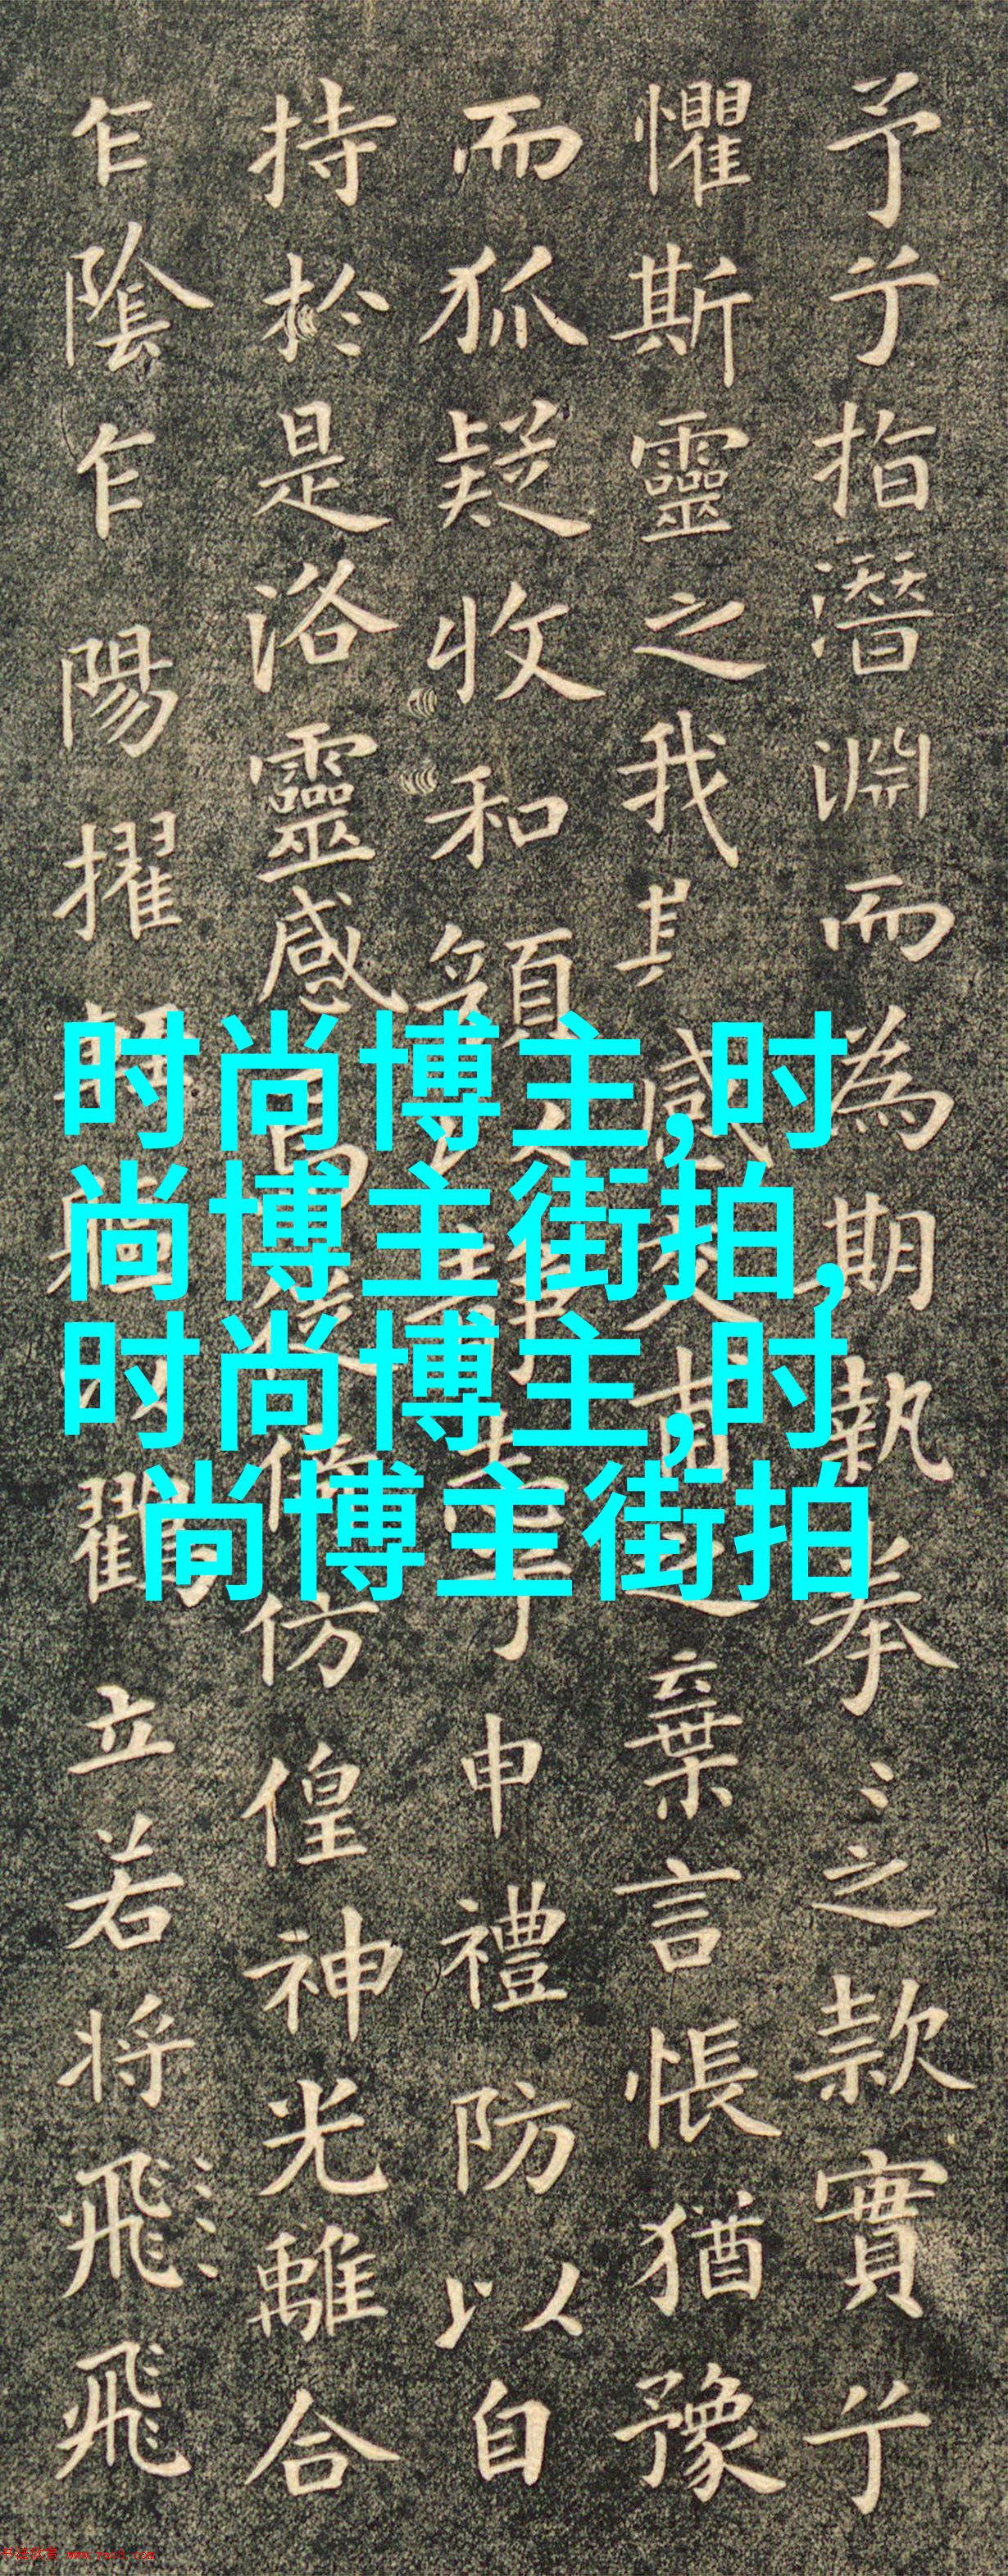 时尚博主,时
尚博主街拍,
时尚博主,时
尚博主街拍
予兮指潛淵而為期執拳〻之款實兮
懼斯靈之我其感交甫之棄言悵猶豫
而狐疑收和顏申禮防以自
持於是洛靈感仿偟神光離合
乍陰乍陽擢立若將飛飛